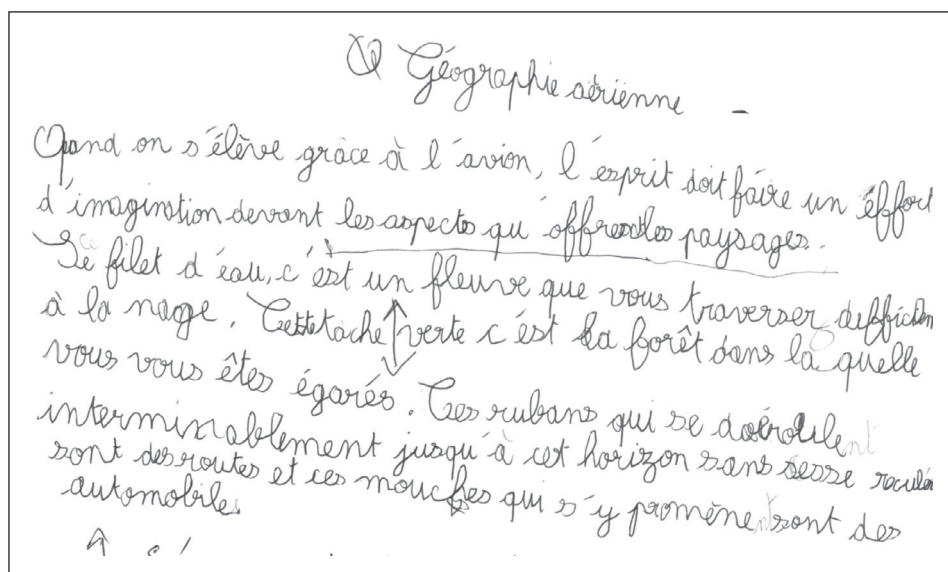 Géographie aérienne
Quand on s'élève grâce à l'avion, l'esprit doit faire un éffort
d'imagination devant les aspects qu'offrent les paysages.
Se filet d'éau, c'ést un fleuve que vous traverser
à la nage. Cette tâche verte c'est la forêt dans la quelle
vous vous êtes égarés. Ces rubans qui se déroulent
interminablement jusqu'à cet horizon sans sesse reculé
sont des routes et ces mouches qui s'y promènent sont des
automobiles